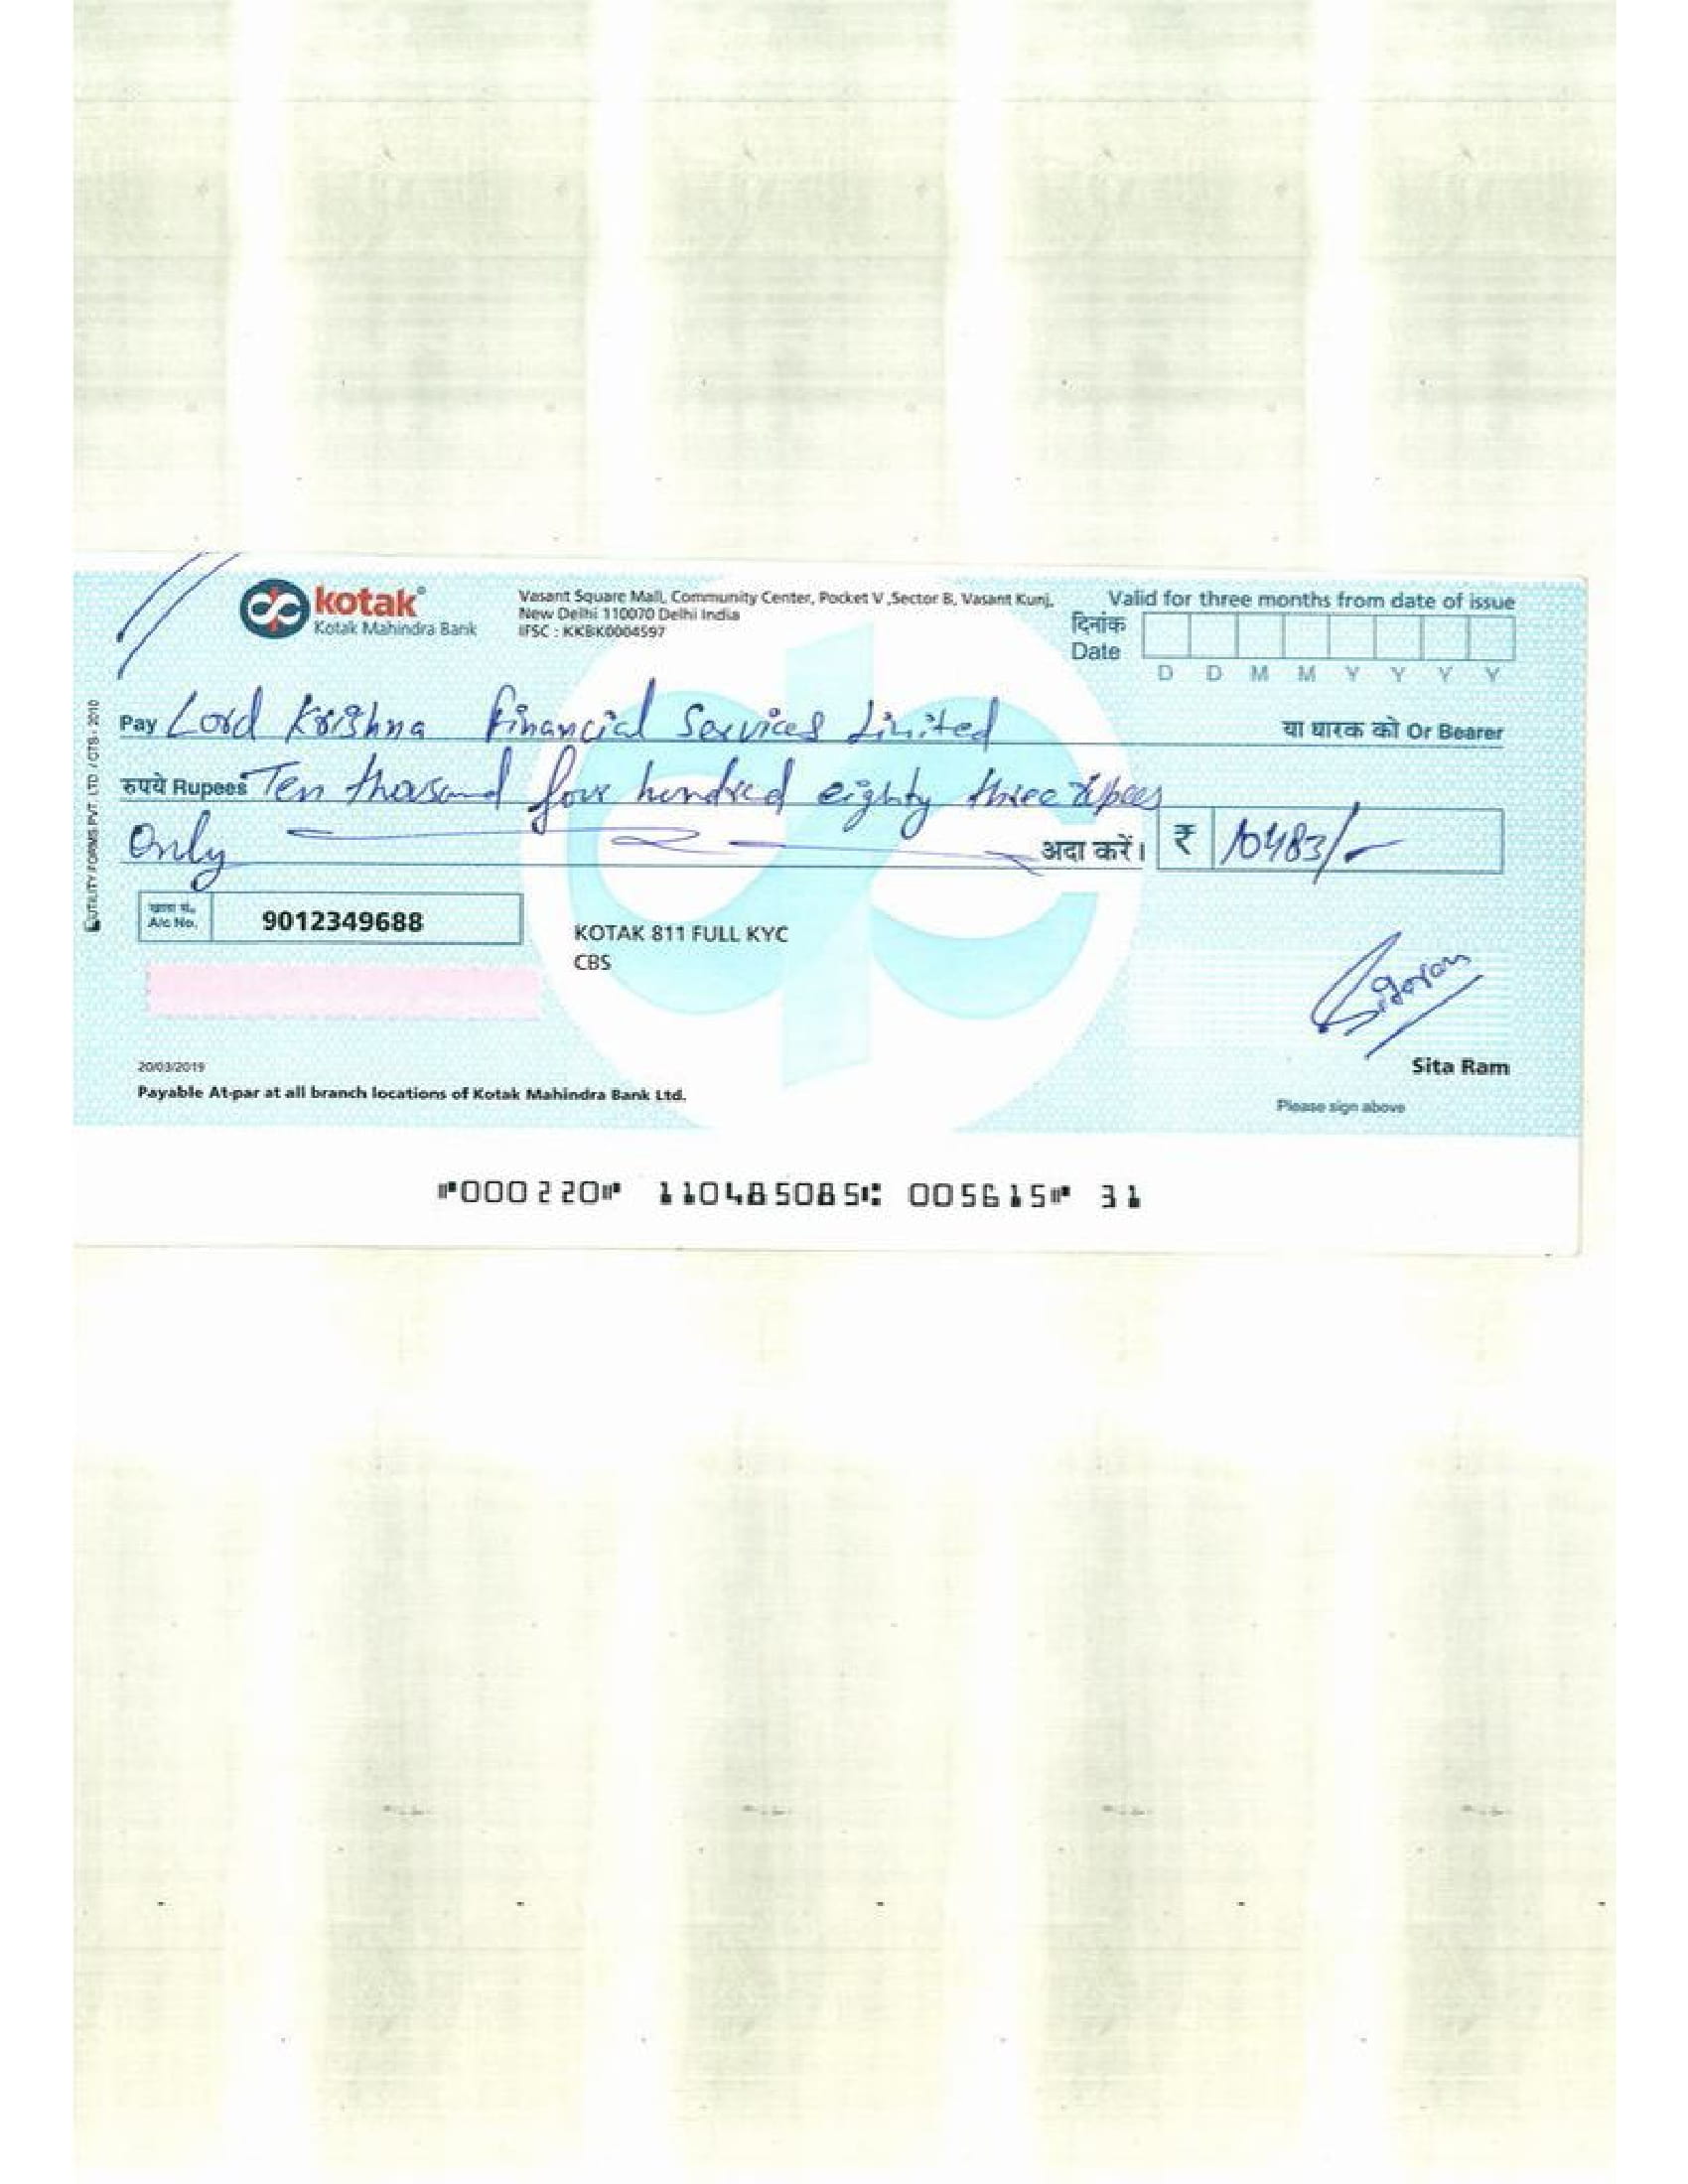 kotak
Kotak Mahindra Bank
Vasant Square Mall, Community Center, Pocket V ,Sector B, Vasant Kunj,
New Delhi 110070 Delhi India
IFSC : KKBK0004597
Valid for three months from date of issue
दिनांक
Date
D D M M Y Y Y Y
Pay Lord Krishna Financial Services Limited या धारक को Or Bearer
रुपये Rupees Ten thousand four hundred eighty three rupees
Only अदा करें। ₹ 10483/-
खाता सं.
A/c No. 9012349688
KOTAK 811 FULL KYC
CBS
Sitaram
Sita Ram
20/03/2019
Payable At-par at all branch locations of Kotak Mahindra Bank Ltd.
Please sign above
UTILITY FORMS PVT LTD / CTS - 2010
⑈000220⑈ 110485085⑆ 005615⑈ 31